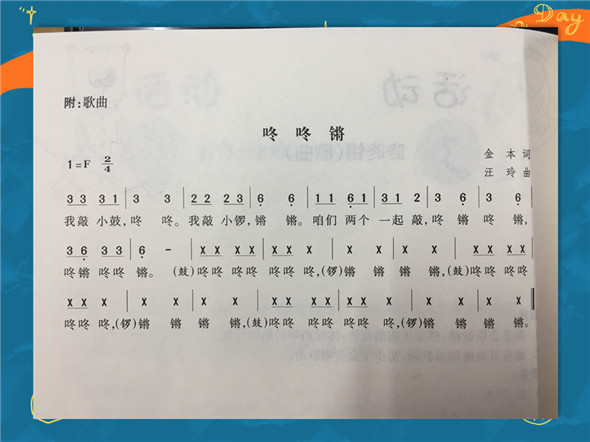 Day
附:歌曲
咚 咚 锵
金 本 词
1=F 2/4
汪 玲 曲
3 3 3 1 | 3 3 | 2 2 2 3 | 6̣ 6̣ | 1 1 6̣ 1 | 3 1 2 | 3 6̣ | 3 6̣ |
我敲 小鼓,咚 咚。我敲 小锣,锵 锵。咱们 两个 一起 敲,咚 锵 咚 锵,
3 6̣ 3 3 | 6̣ - | X X X X | X X X | X X | X X | X X X X |
咚锵 咚咚 锵。 (鼓)咚咚 咚咚 咚咚 咚,(锣)锵 锵 锵 锵,(鼓)咚咚 咚咚
X X X | X X | X X | X X X X | X X X | X X | X X ‖
咚咚 咚,(锣)锵 锵 锵 锵,(鼓)咚咚 咚咚 咚咚 咚,(锣)锵 锵 锵 锵。